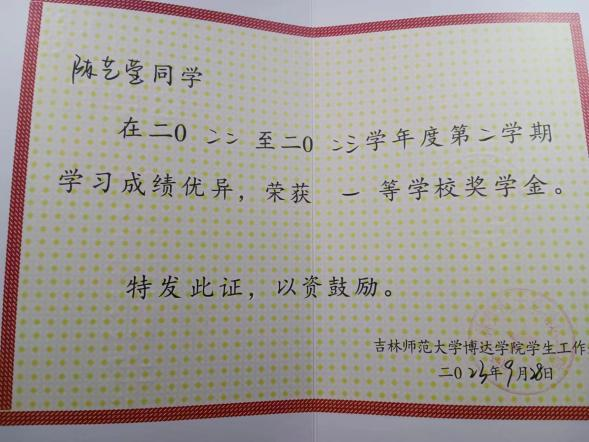 陈艺莹同学
在二〇二二至二〇二三学年度第二学期
学习成绩优异，荣获 一 等学校奖学金。
特发此证，以资鼓励。
吉林师范大学博达学院学生工作
二〇23年9月28日